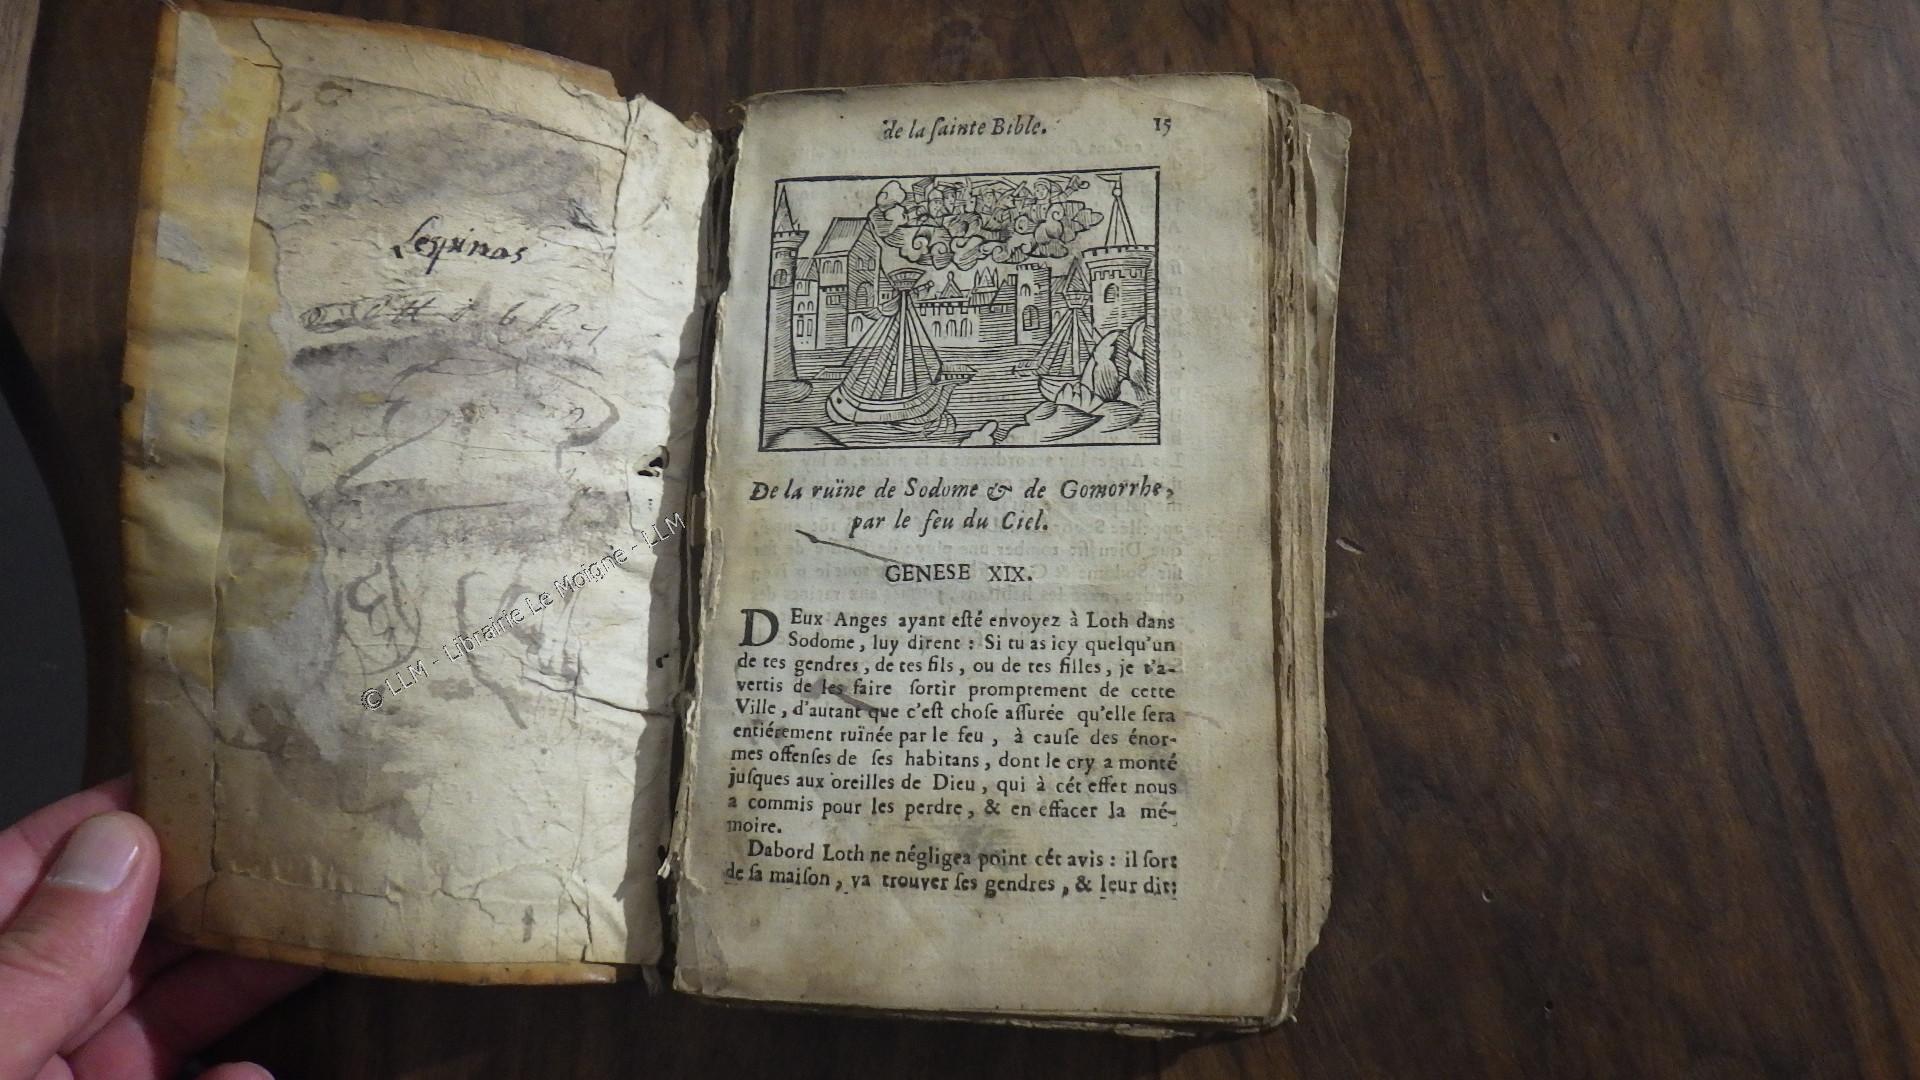 © LLM - Librairie Le Moigne - LLM
de la ſainte Bible.
15
De la ruïne de Sodome & de Gomorrhe,
par le feu du Ciel.
GENESE XIX.
DEux Anges ayant eſté envoyez à Loth dans
Sodome, luy dirent : Si tu as icy quelqu'un
de tes gendres, de tes fils, ou de tes filles, je t'a-
vertis de les faire ſortir promptement de cette
Ville, d'autant que c'eſt choſe aſſurée qu'elle ſera
entiérement ruïnée par le feu, à cauſe des énor-
mes offenſes de ſes habitans, dont le cry a monté
juſques aux oreilles de Dieu, qui à cét effet nous
a commis pour les perdre, & en effacer la mé-
moire.
Dabord Loth ne négligea point cét avis : il ſort
de ſa maiſon, va trouver ſes gendres, & leur dit: